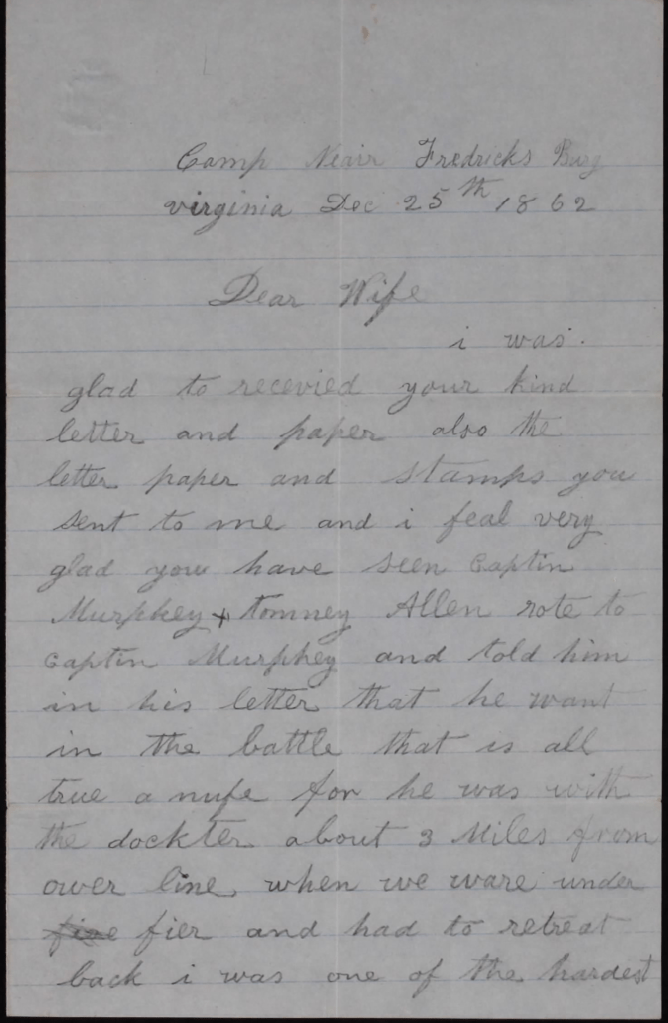 Camp Neair Fredricks Burg
virginia Dec 25th 1862
Dear Wife
i was.
glad to recevied your kind
letter and paper also the
letter paper and stamps you
sent to me and i feal very
glad you have seen Captin
Murphey + tomney Allen rote to
Captin Murphey and told him
in his letter that he want
in the battle that is all
true a nufe for he was with
the dockter about 3 Miles from
ower line when we ware under
fire fier and had to retreat
back i was one of the hardest